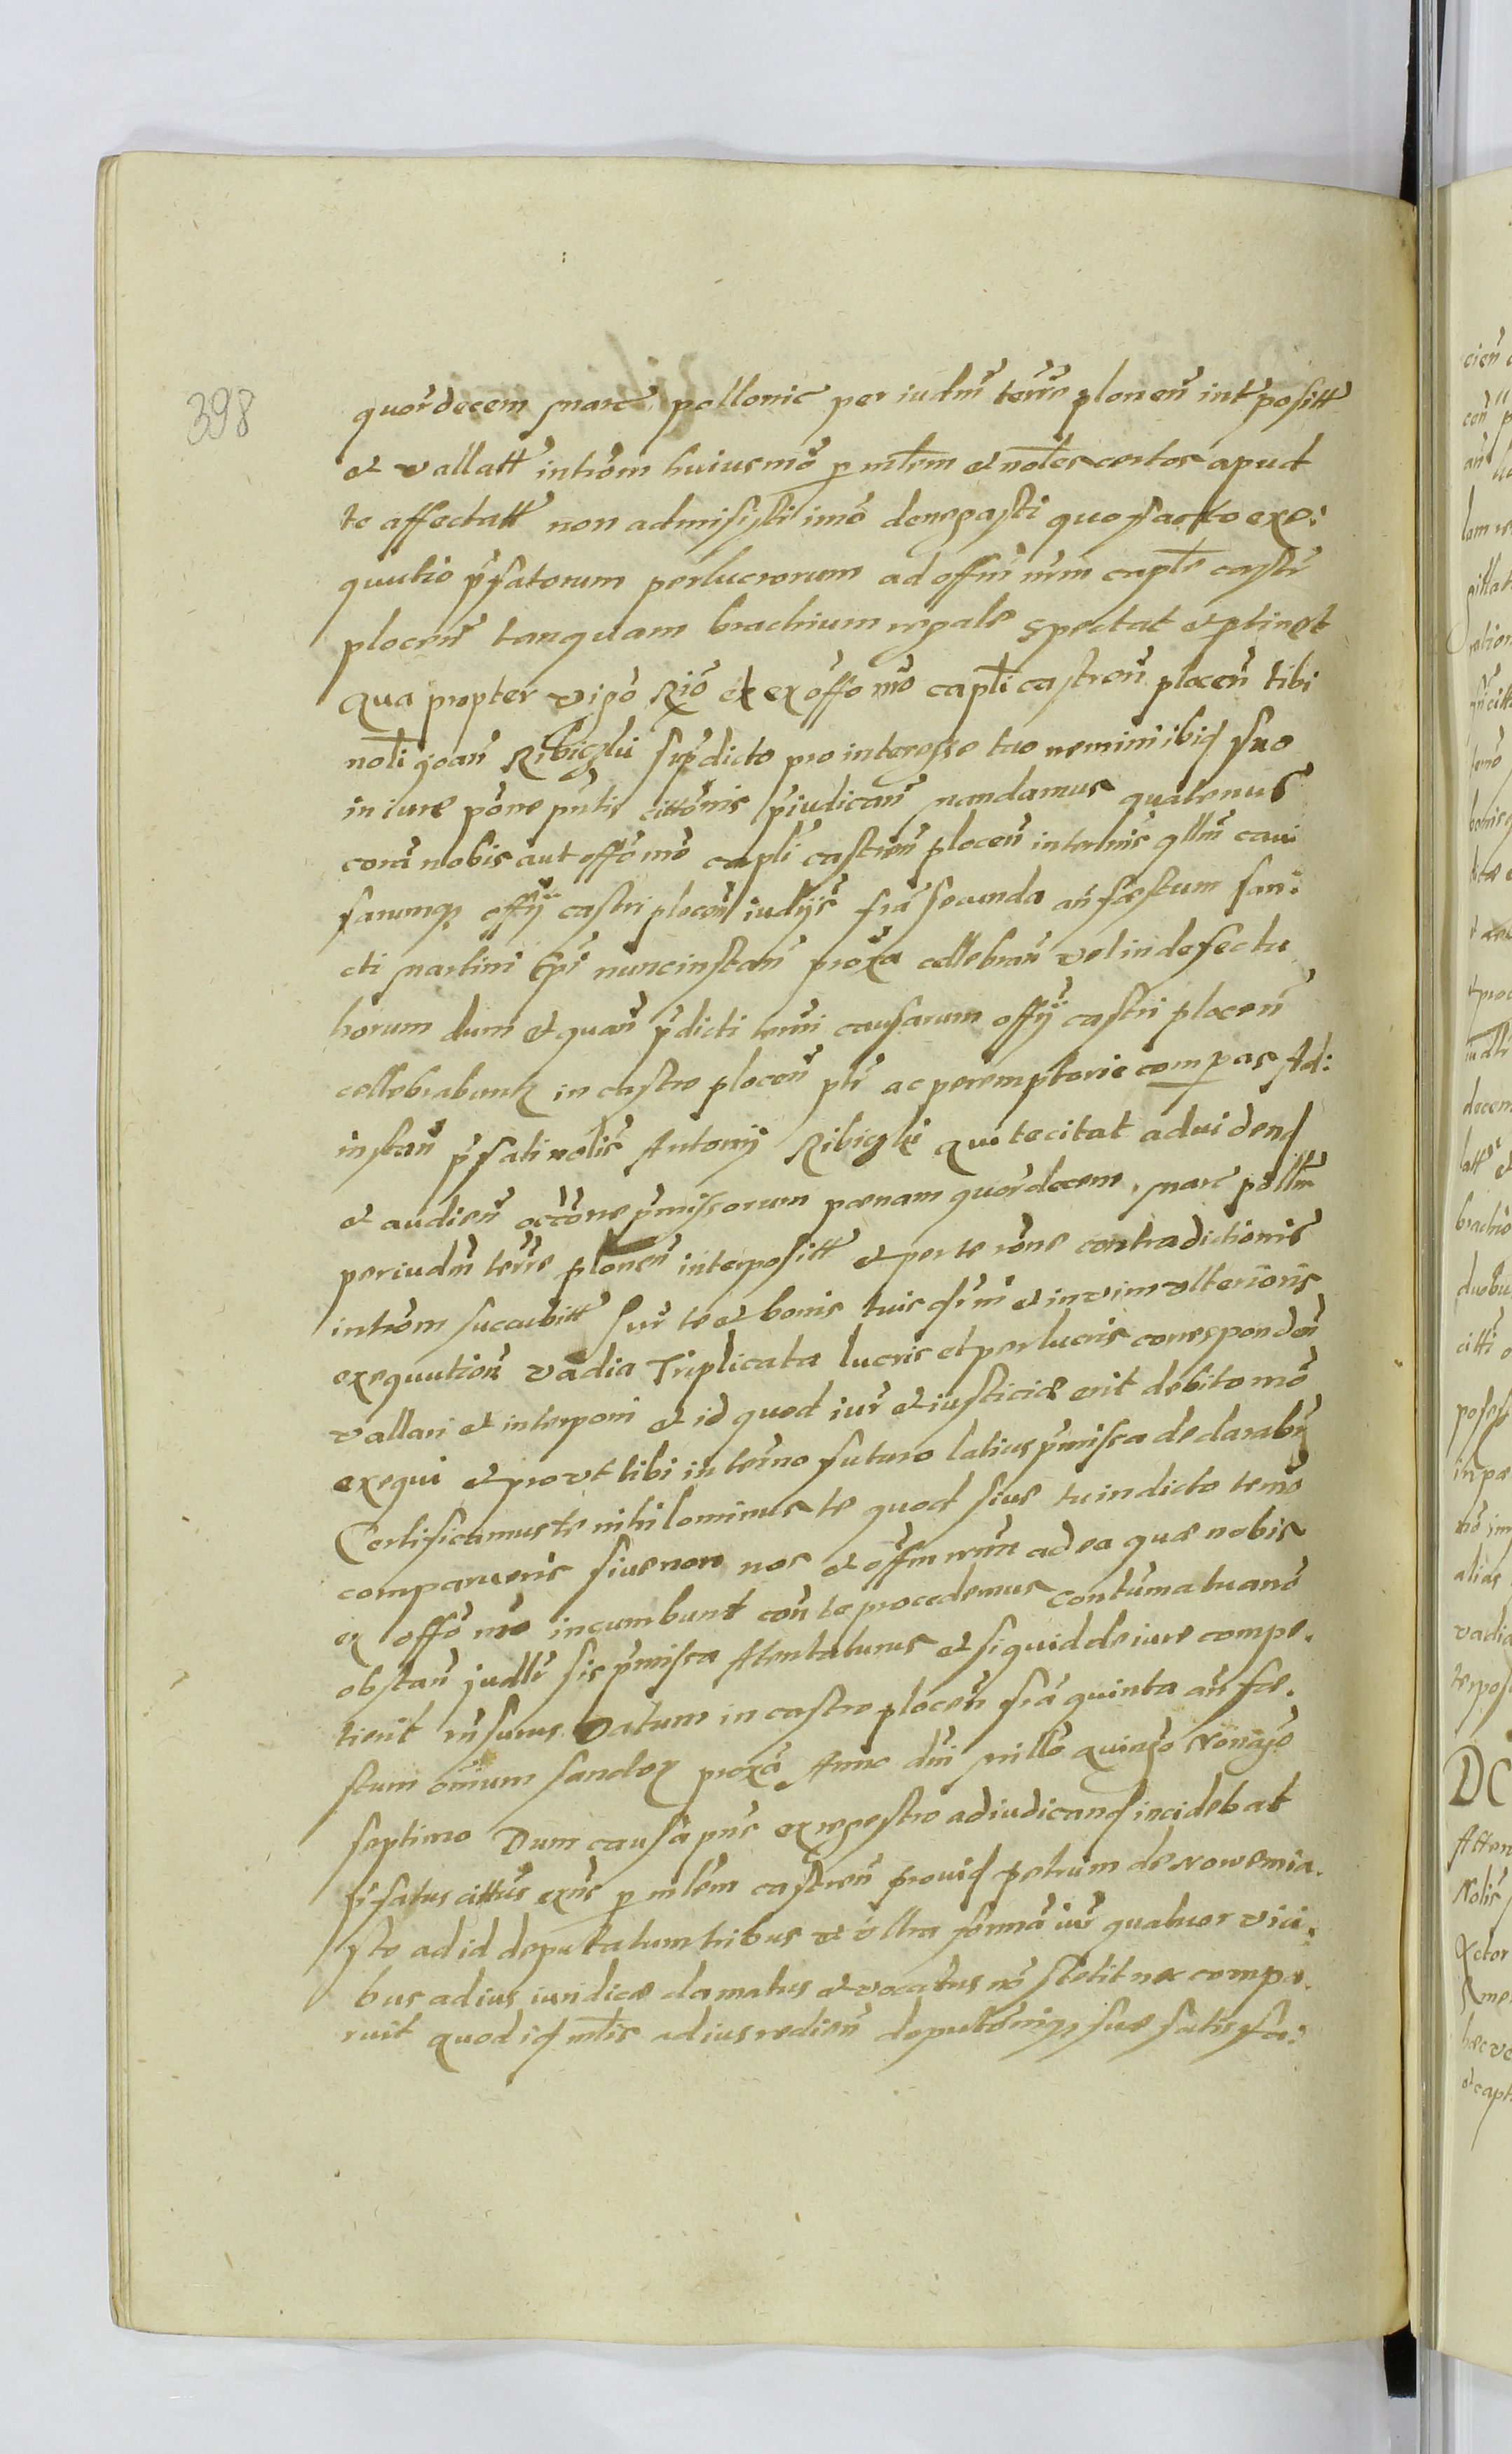 398
quordecem marc pollonic per iudm terre plonen intpositt
et vallatt introm huiusmo p mlem et nobles certos apud
te affectatt non admisisti imo denegasti quo facto exe:
quutio pfatorum perlucrorum ad offm nrm caple castr
plocen tanquam brachium regale spectat et ptinet
Qua propter vigo Rio et ex offo nro capli castren plocen tibi
nobli Joan Ribiczki supdicto pro interesse tuo nemini ibiq suo
in iure pone pntis cittonis piudican mandamus quatenus
cora nobis aut offo nro capli castren plocen in terminis qllm cau
sarumq offij castri plocen iudijs fria secunda an festum san:
cti Martini Epi nunc instan proxa cellebran vel in defectu
horum dum et quan pdicti termi causarum offij castri plocen
cellebrabunt in castro plocen plr ac peremptorie compas Ad:
instan pfati noblis Antonij Ribiczki Qui te citat ad videnq
et audien occone pmissorum pænam quordecem marc pollm
per iudm terre plonen interpositt et per te rone contradictionis
introm succubitt sur te et bonis tuis et in vim vlterioris
exequution vadia Triplicata lucris et perlucris corresponden
vallari et interponi et id quod iur et iusticiæ erit debito mo
exequi et provt tibi in termo futuro latius pmissa declarabr
Certificamus te nihilominus te quod siue tu in dicto termo
comparueris siue non nos et offm nrm ad ea quæ nobis
ex offo nro incumbunt con te procedemus contuma tua no
obstan judlr sis pmissa Attentaturus et siquid de iure compe.
tierit rnsurus Datum in castro plocen fria quinta an fe.
stum omium sanctor proxa Anno dni millo quingo Nonago
septimo Dum causa pns ex regestro ad iudicand incidebat
pfatus cittus exns p mlem castren prouid petrum de Nowemia.
sto ad id deputatum tribus et vltra forma iur quatuor vici.
bus ad ius iuridice clamatus et vocatus no stetit nec compa.
ruit Quod iq mlis ad ius redien deputoniq suæ satisfa: